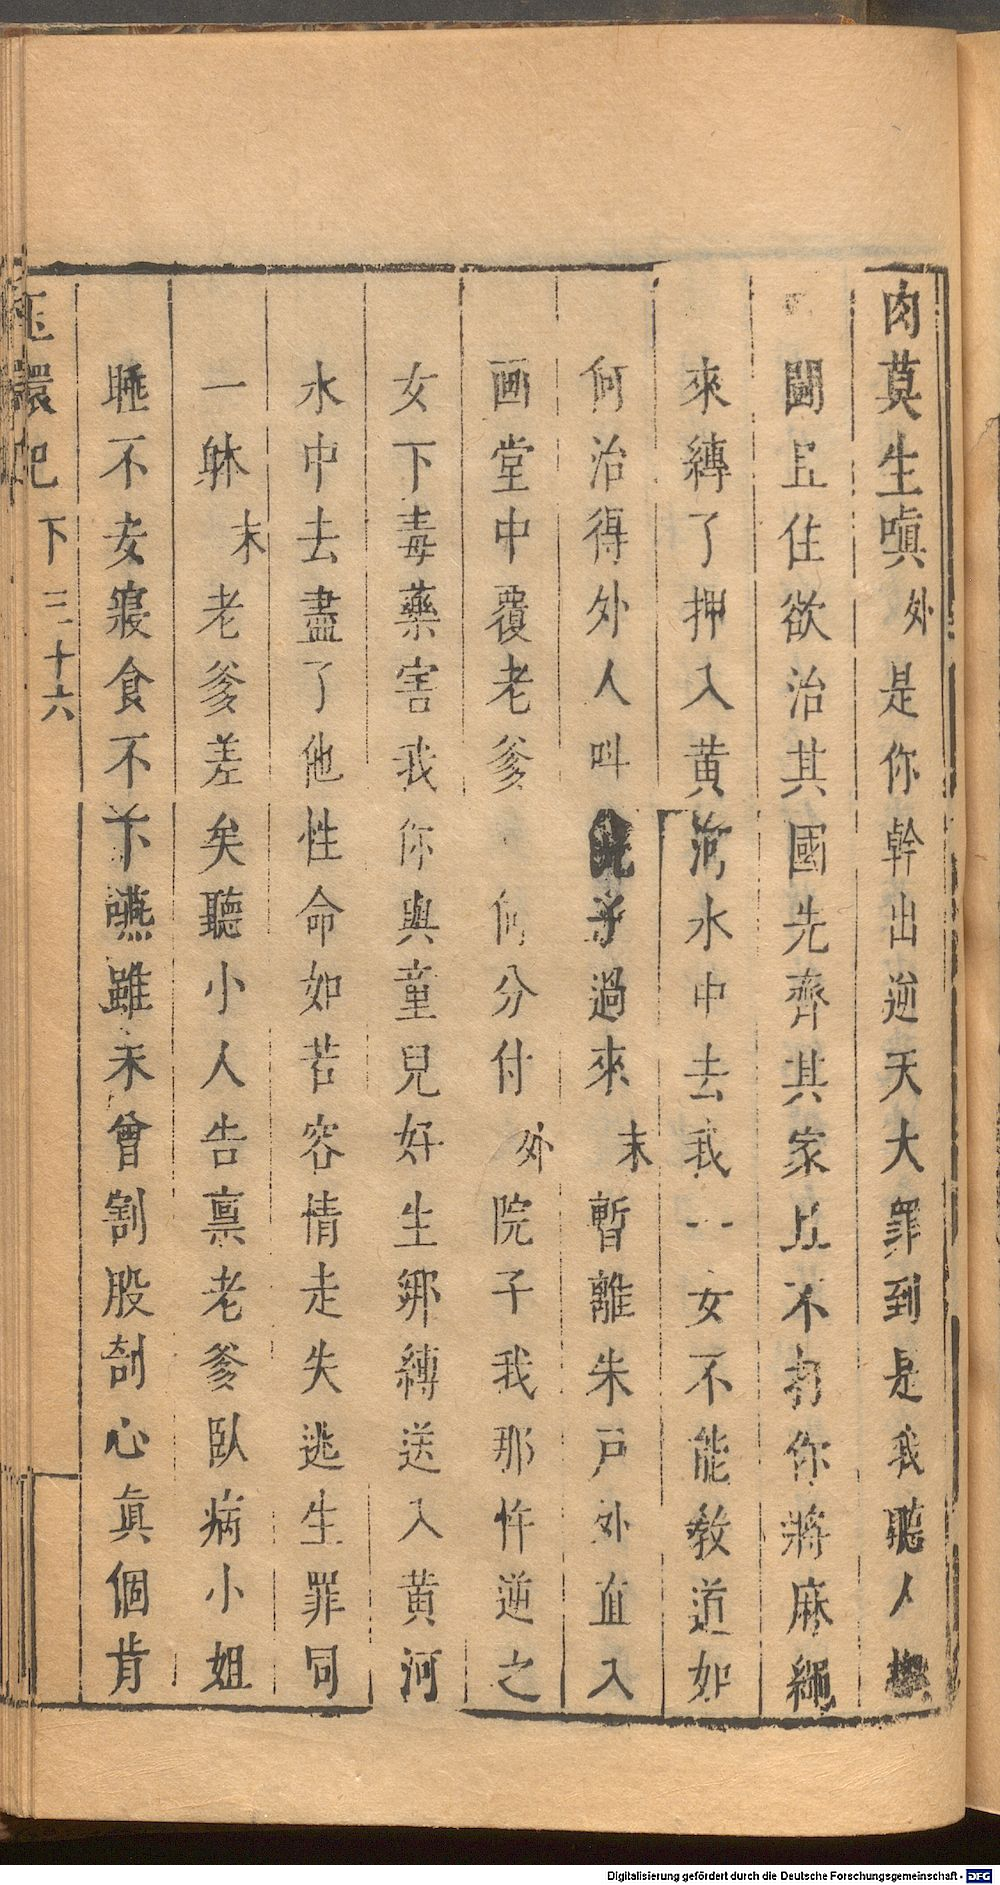 肉莫生嗔外是你幹出逆天大罪到是我聽人
鬪且住欲治其國先齊其家且不打你將麻繩
來縛了押入黄河水中去我一女不能敎道如
何治得外人叫過來末暫離朱戸外直入
画堂中覆老爹何分付外院子我那忤逆之
女下毒藥害我你與童兒好生綁縛送入黄河
水中去盡了他性命如若容情走失逃生罪同
一躰末老爹差矣聽小人告禀老爹臥病小姐
睡不安寢食不下嚥雖未曾割股刳心眞個肯
玉環記下三十六
Digitalisierung gefördert durch die Deutsche Forschungsgemeinschaft - DFG